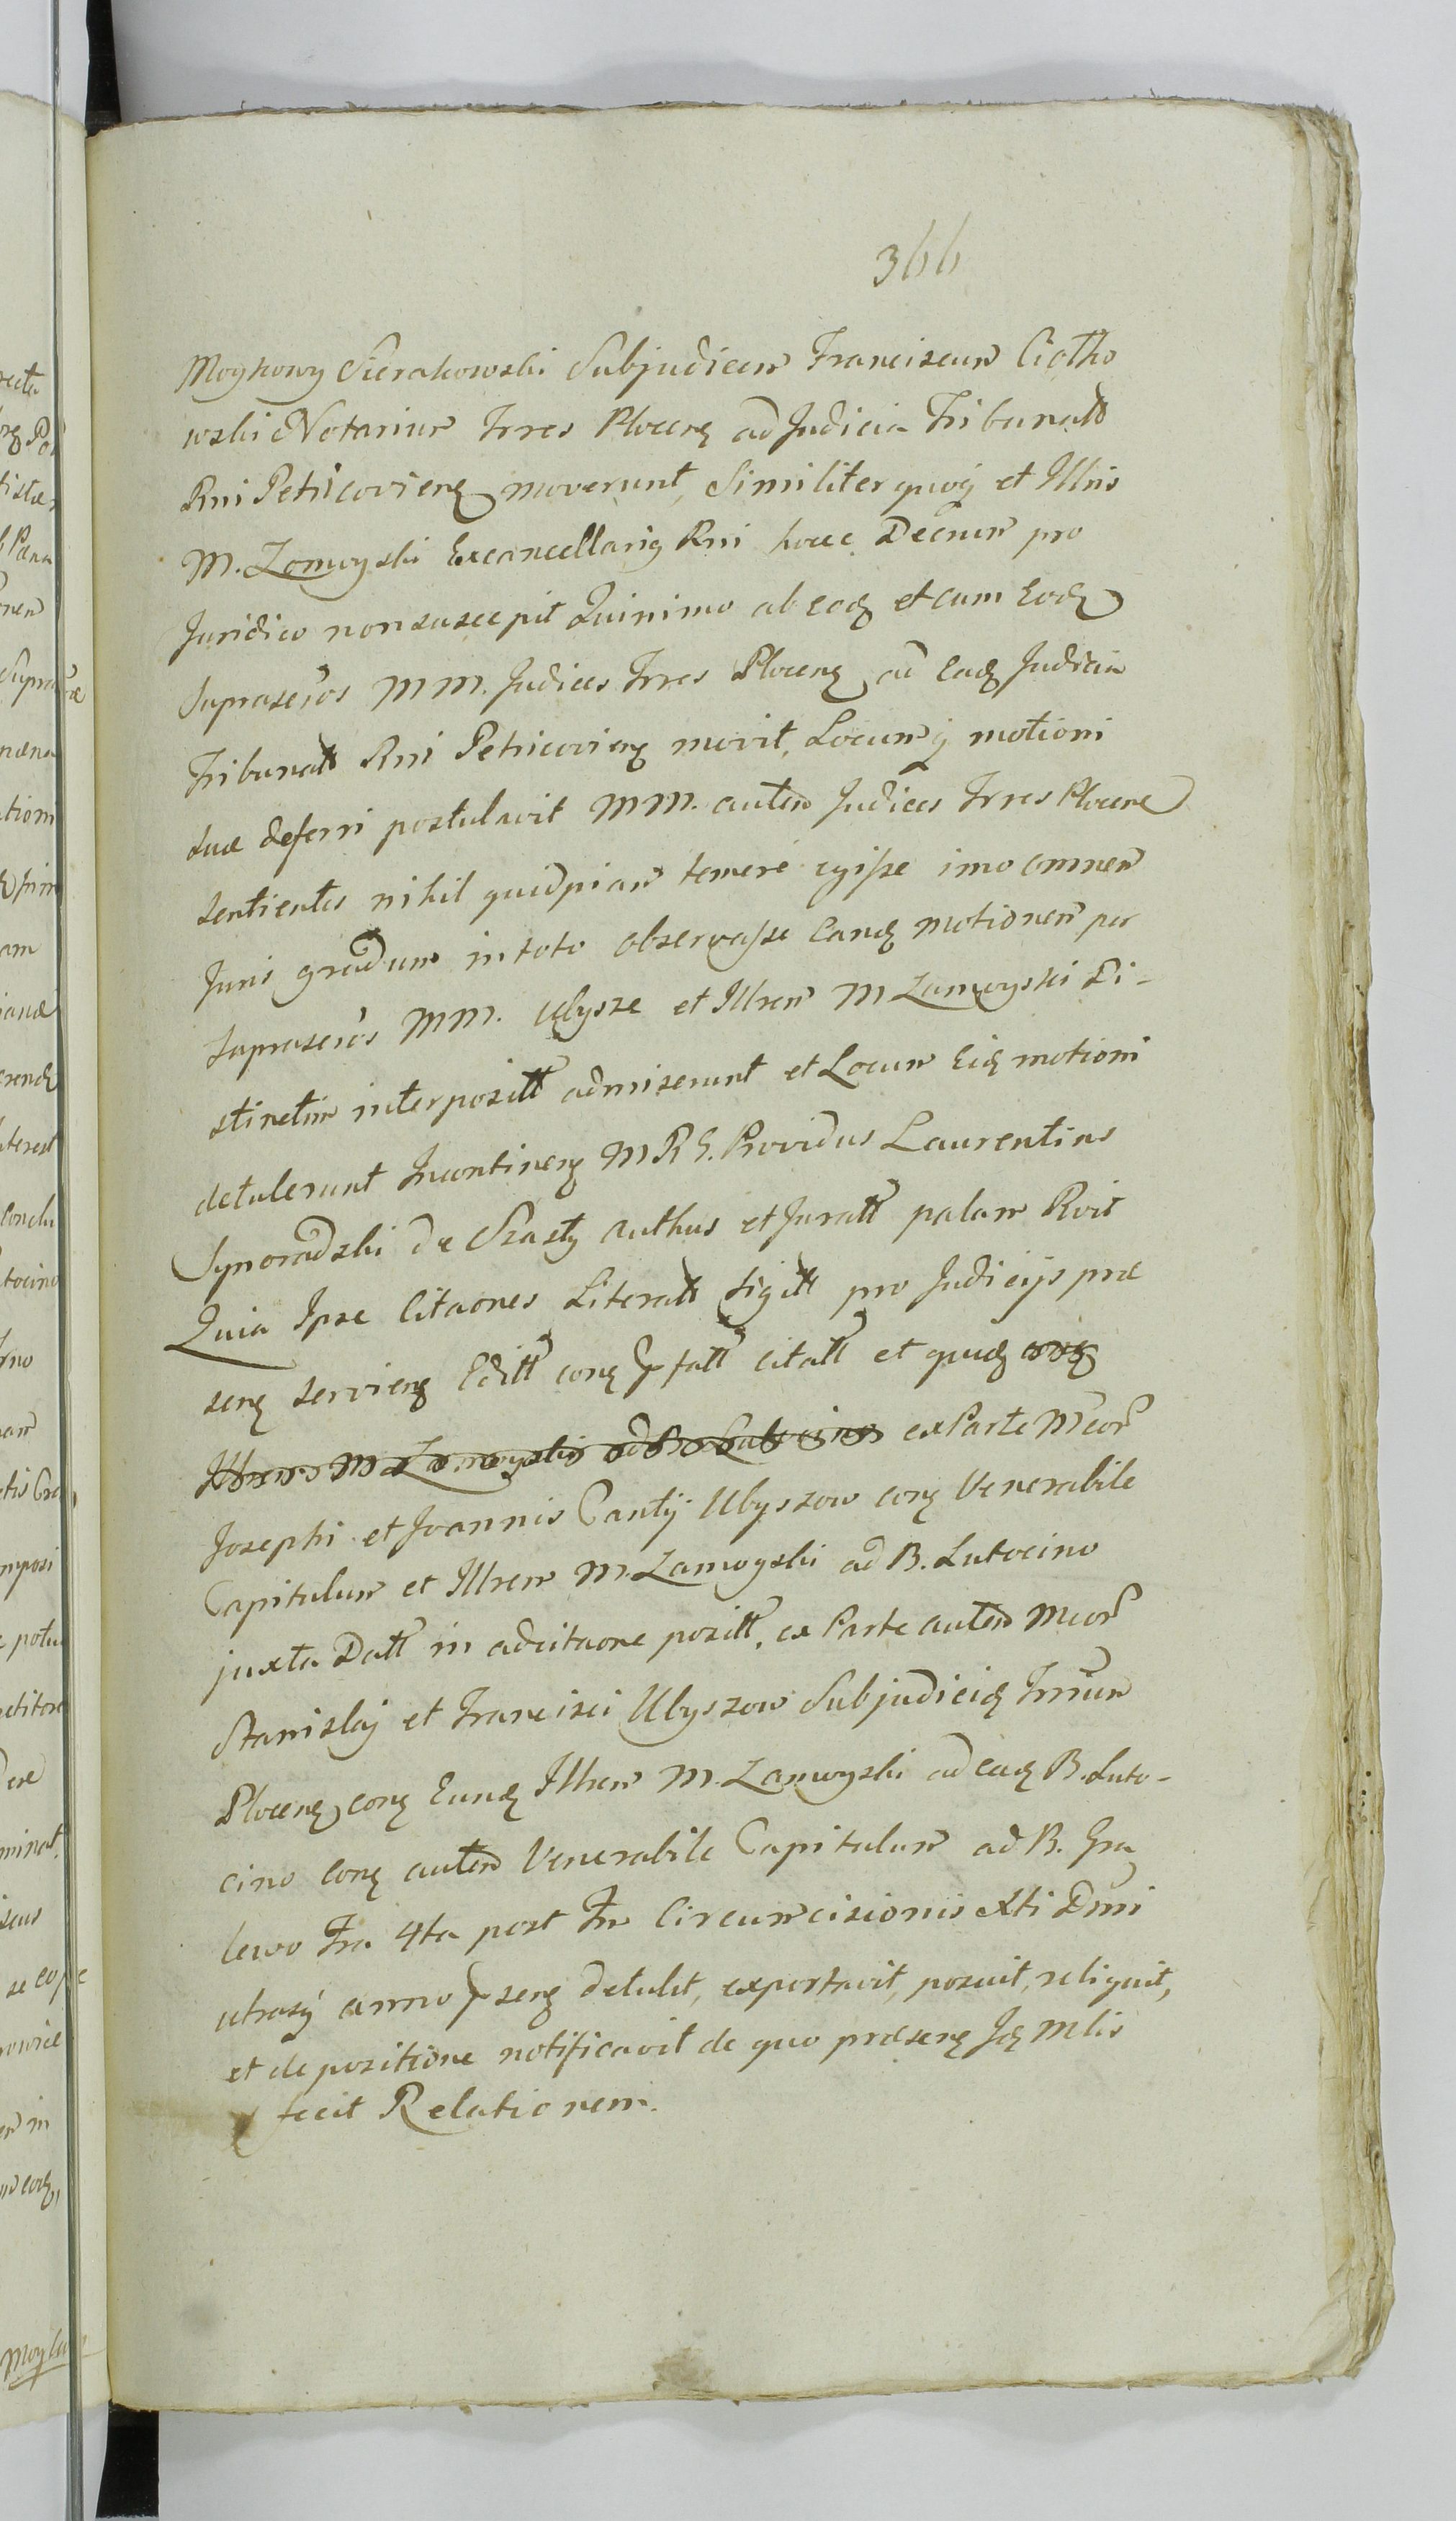 366
Moykowy Sierakowski Subjudicem Franciscum Ciołko
wski Notarium Trres Plocens ad Judicia Tribunalis
Rni Petricoviens moverunt, Similiter quoq et Illris
M. Zamoyski Excancellarius Rni hocce Decrum pro
Juridico non suscepit Quinimo ab eod et cum Eod
Suprascros MM. Judices Trres Plocens ad Ead Judicia
Tribunalis Rni Petricoviens movit, Locumq motioni
suæ deferri postulavit MM. autem Judices Trres Plocens
sentientes nihil quidpiam temere egisse imo omnem
Juris gradum in toto observasse Eand motionem per
suprascros MM. Ubysze et Illrem M Zamoyski Di-
stinctim interposit admiserunt et Locum Eid motioni
detulerunt Incontinens MRG. Providus Laurentius
Synoradzki de Szasty authus et Jurat palam Rvit
Quia Ipse Citaones Literat sigill pro Judicijs præ
sens serviens Edit cons pfat citat et quid
Illrem M Zamoyski ad B. Lutocino ex Parte Mcor
Josephi et Joannis Cantÿ Ubyszow cons Venerabile
Capitulum et Illrem M. Zamoyski ad B. Lutocino
juxta Dat in adcitaone posit, ex Parte autem Mcor
Stanislaj et Francisci Ubyszow Subjudicid Trrium
Plocens cons Eund Illrem M. Zamoyski ad ead B. Luto-
cino cons autem Venerabile Capitulum ad B. Gra
lewo Fra 4ta post Fm Circumcisionis Xti Dmi
utrasq anno psens detulit, exportavit, posuit, reliquit,
et de positione notificavit de quo præsens Jd Mlis
fecit Relationem.